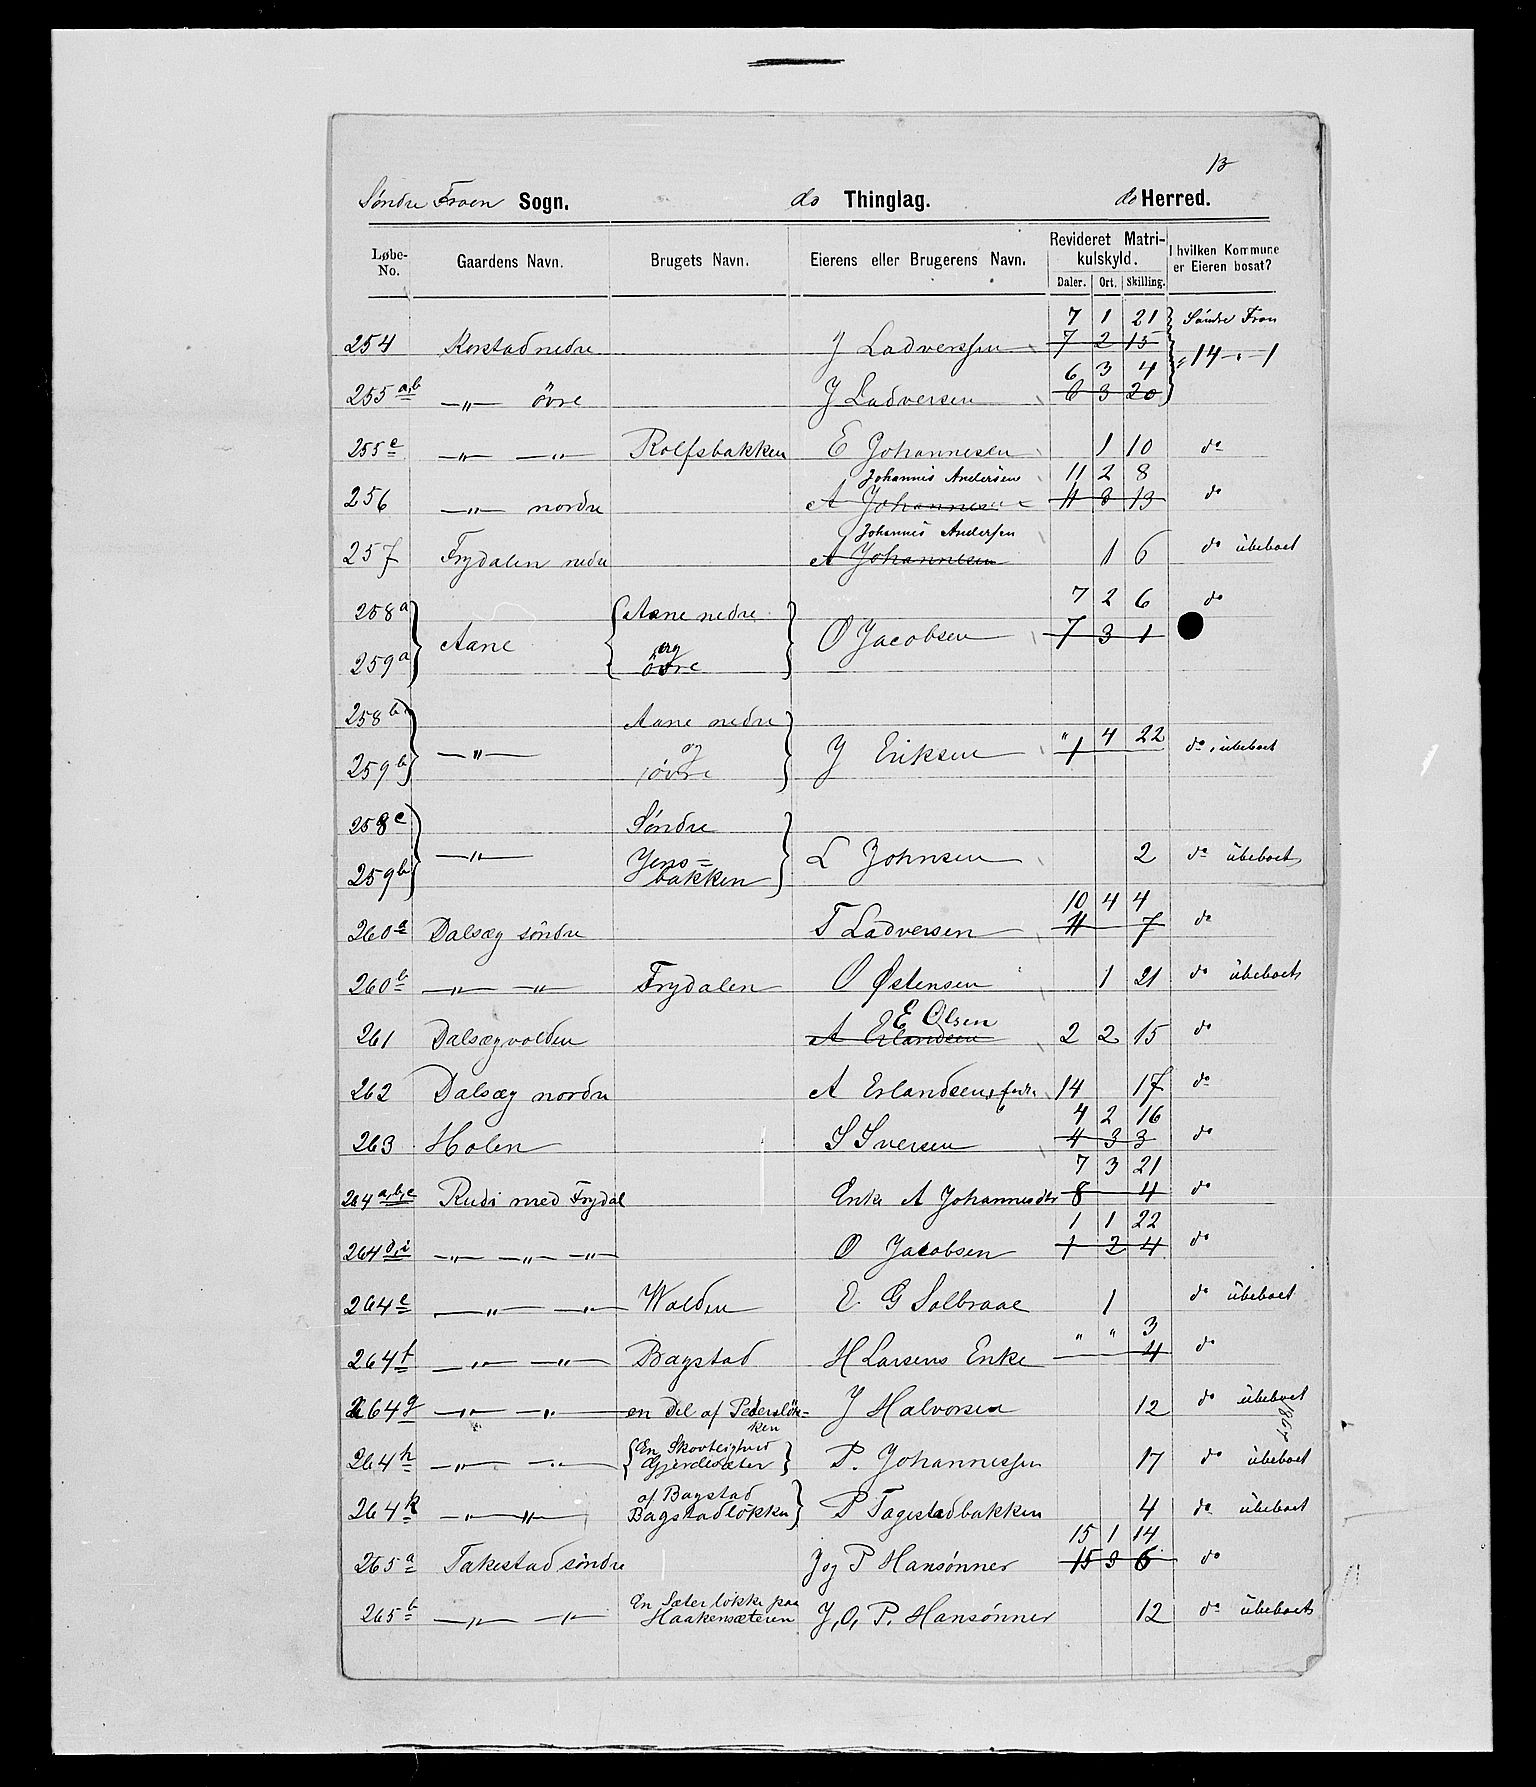 13
Søndre Froen Sogn. do Thinglag. do Herred.
Løbe-No. Gaardens Navn. Brugets Navn. Eierens eller Brugerens Navn. Revideret Matrikulskyld. I hvilken Kommune er Eieren bosat?
Daler. Ort. Skilling.
7 1 21 Søndre Fron
254 Korstad nedre J Ladverssen 7 2 15
6 3 4 14 - 1
255 a,b —„— övre J Ladversen 6 3 20
255 c —„— —„— Rolfsbakken E Johannesen 1 10 do
Johannis Andersen 11 2 8
256 —„— nordre A Johannesen 11 3 13 do
Johannis Andersen
257 Frydalen nedre A Johannesen 1 6 do übeboet
258a Aane nedre 7 2 6 do
Aane og O Jacobsen 7 3 1
259a övre
258b Aane nedre
—„— og J Eriksen „ 4 22 do, übeboet
1
259b övre
258c Søndre
—„— Jens= L Johnsen 2 do übeboet
259b bakken
10 4 4
260a Dalsæg söndre T Ladversen 11 7 do
260b —„— —„— Frydalen O Østensen 1 21 do übeboet
E Olsen
261 Dalsægvolden A Erlandsen 2 2 15 do
262 Dalsæg nordre A Erlandsen 14 17 do
4 2 16
263 Holen S Iversen 4 3 3 do
7 3 21
264 a,b,c Rudi med Frydal Enke A Johannesdtr 8 4 do
1 1 22
264 d,i —„— —„— —„— O Jacobsen 1 2 4 do
264e —„— —„— Wolden E G Solbraae 1 do übeboet
„ „ 3
264f —„— —„— Bagstad H Larsens Enke 4 do
264g —„— —„— en Del af Pedersløk= J Halvorsen 12 do übeboet
ken
1867
En Skovteighved
264h —„— —„— Gjerdesæter P. Johannessen 17 do übeboet
af Bagstad
264k —„— —„— Bagstadløkken P Tagestadbakken 4 do übeboet
15 1 14
265a Takestad söndre J og P Hansønner 15 3 6 do
En Sæterløkke paa
265b —„— —„— Haakensæteren J, O, P. Hansønner 12 do übeboet